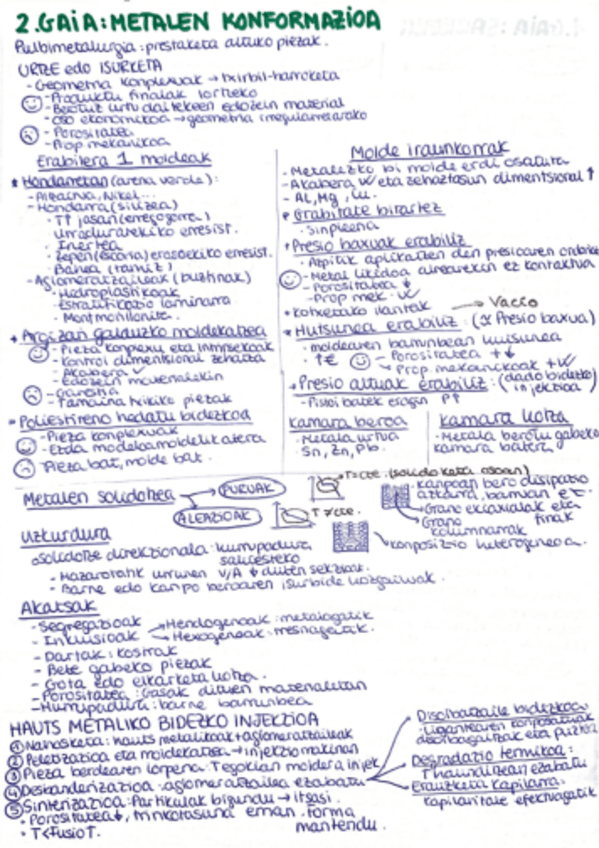 2.GAiA: METALEN KONFORMAZIOA
Pulbimetalurgia: prestaketa altuko piezak.
URTZE edo ISURKETA
- Geometria konplexuak → txirbil-harroketa
- Produktu finalak lortzeko
- Berotuz urtu daitekeen edozein material
- oso ekonomikoa → geometria irregularretarako
- Porositatea
- Prop mekanikoa
Erabilera 1 moldeak
* Hondarretan (arena verde):
- Hondarra (silizea)
- Inertea
- Aglomeratzaileak (buztinak)
- Hidroplastikoak
- Estratifikazio laminarra
- Montmorillonita.
* Argizari galduzko moldekatzea
- Pieza konplexu eta
- Kontrol dimentsional zehatza
- Akabera ✓
- Edozein materialekin
- Garestia
- Tamaina txikiko piezak
* Poliestireno hedatu bidezkoa
- Pieza konplexuak
- Pieza bat, molde bat.
Molde iraunkorrak
- Metalezko bi molde erdi osatuta
- Akabera ✓ eta zehaztasun dimentsional ↑
- Al, Mg, Cu.
* Grabitate bitartez
- Sinpleena
* Presio baxuak erabiliz
- Azpitik aplikatzen den presioaren ondorioz
- Metal likidoa airearekin ez kontaktua
- Porositatea ↓
- Prop mek. ✓
* Kotxetako llantak
→ Vacío
* Hutsunea erabiliz: (≈ Presio baxua)
- moldearen barrunbean hutsunea
- ↑€
- Porositatea +↓
- Prop mekanikoak +✓
* Presio altuak erabiliz: (dado bidezko injekzioa)
- Pistoi batek eragin P↑
kamara beroa
- Metala urtua
- Sn, Zn, Pb.
kamara hotza
- Metala berotu gabeko
kamara batera
Metalen solidotzea
PURUAK
T=cte. (solido kata osoan)
ALEAZIOAK
T≠cte.
- Kanpoan bero disipazio
azkarra, barruan ez.
- Grano ekiaxialak eta finak
- Grano kolumnarrak
- Konposizio heterogeneoa.
Uzkurdura
- Barne edo kanpo beroaren isurbide hozgailuak.
Akatsak
- Segregazioak
- Inklusioak → Hendogenoak: metalagatik
→ Hexogenoak:
- Dartak:
- Bete gabeko piezak
- Gota edo elkarketa hotza.
- Porositatea: Gasak dituen materialetan
- Hurrupadura: barne barrunbea
HAUTS METALIKO BIDEZKO INJEKZIOA
① Nahasketa: hauts metalikoak + aglomeratzaileak
② Peletizazioa eta moldekatzea → injekzio makinan
③ Pieza berdearen lorpena: Tegokian moldera injek
④ Desbanderizazioa: aglomeratzailea ezabatu
⑤ Sinterizazioa: Partikulak bigundu → itsasi.
- Porositatea ↓, trinkotasuna eman. Forma mantendu.
- T<FusioT.
Disolbatzaile bidezkoa:
Ligantearen konposatuak
Degradazio termikoa:
T handitzean ezabatu
Erauzketa kapilarra:
kapilaritate efektuagatik